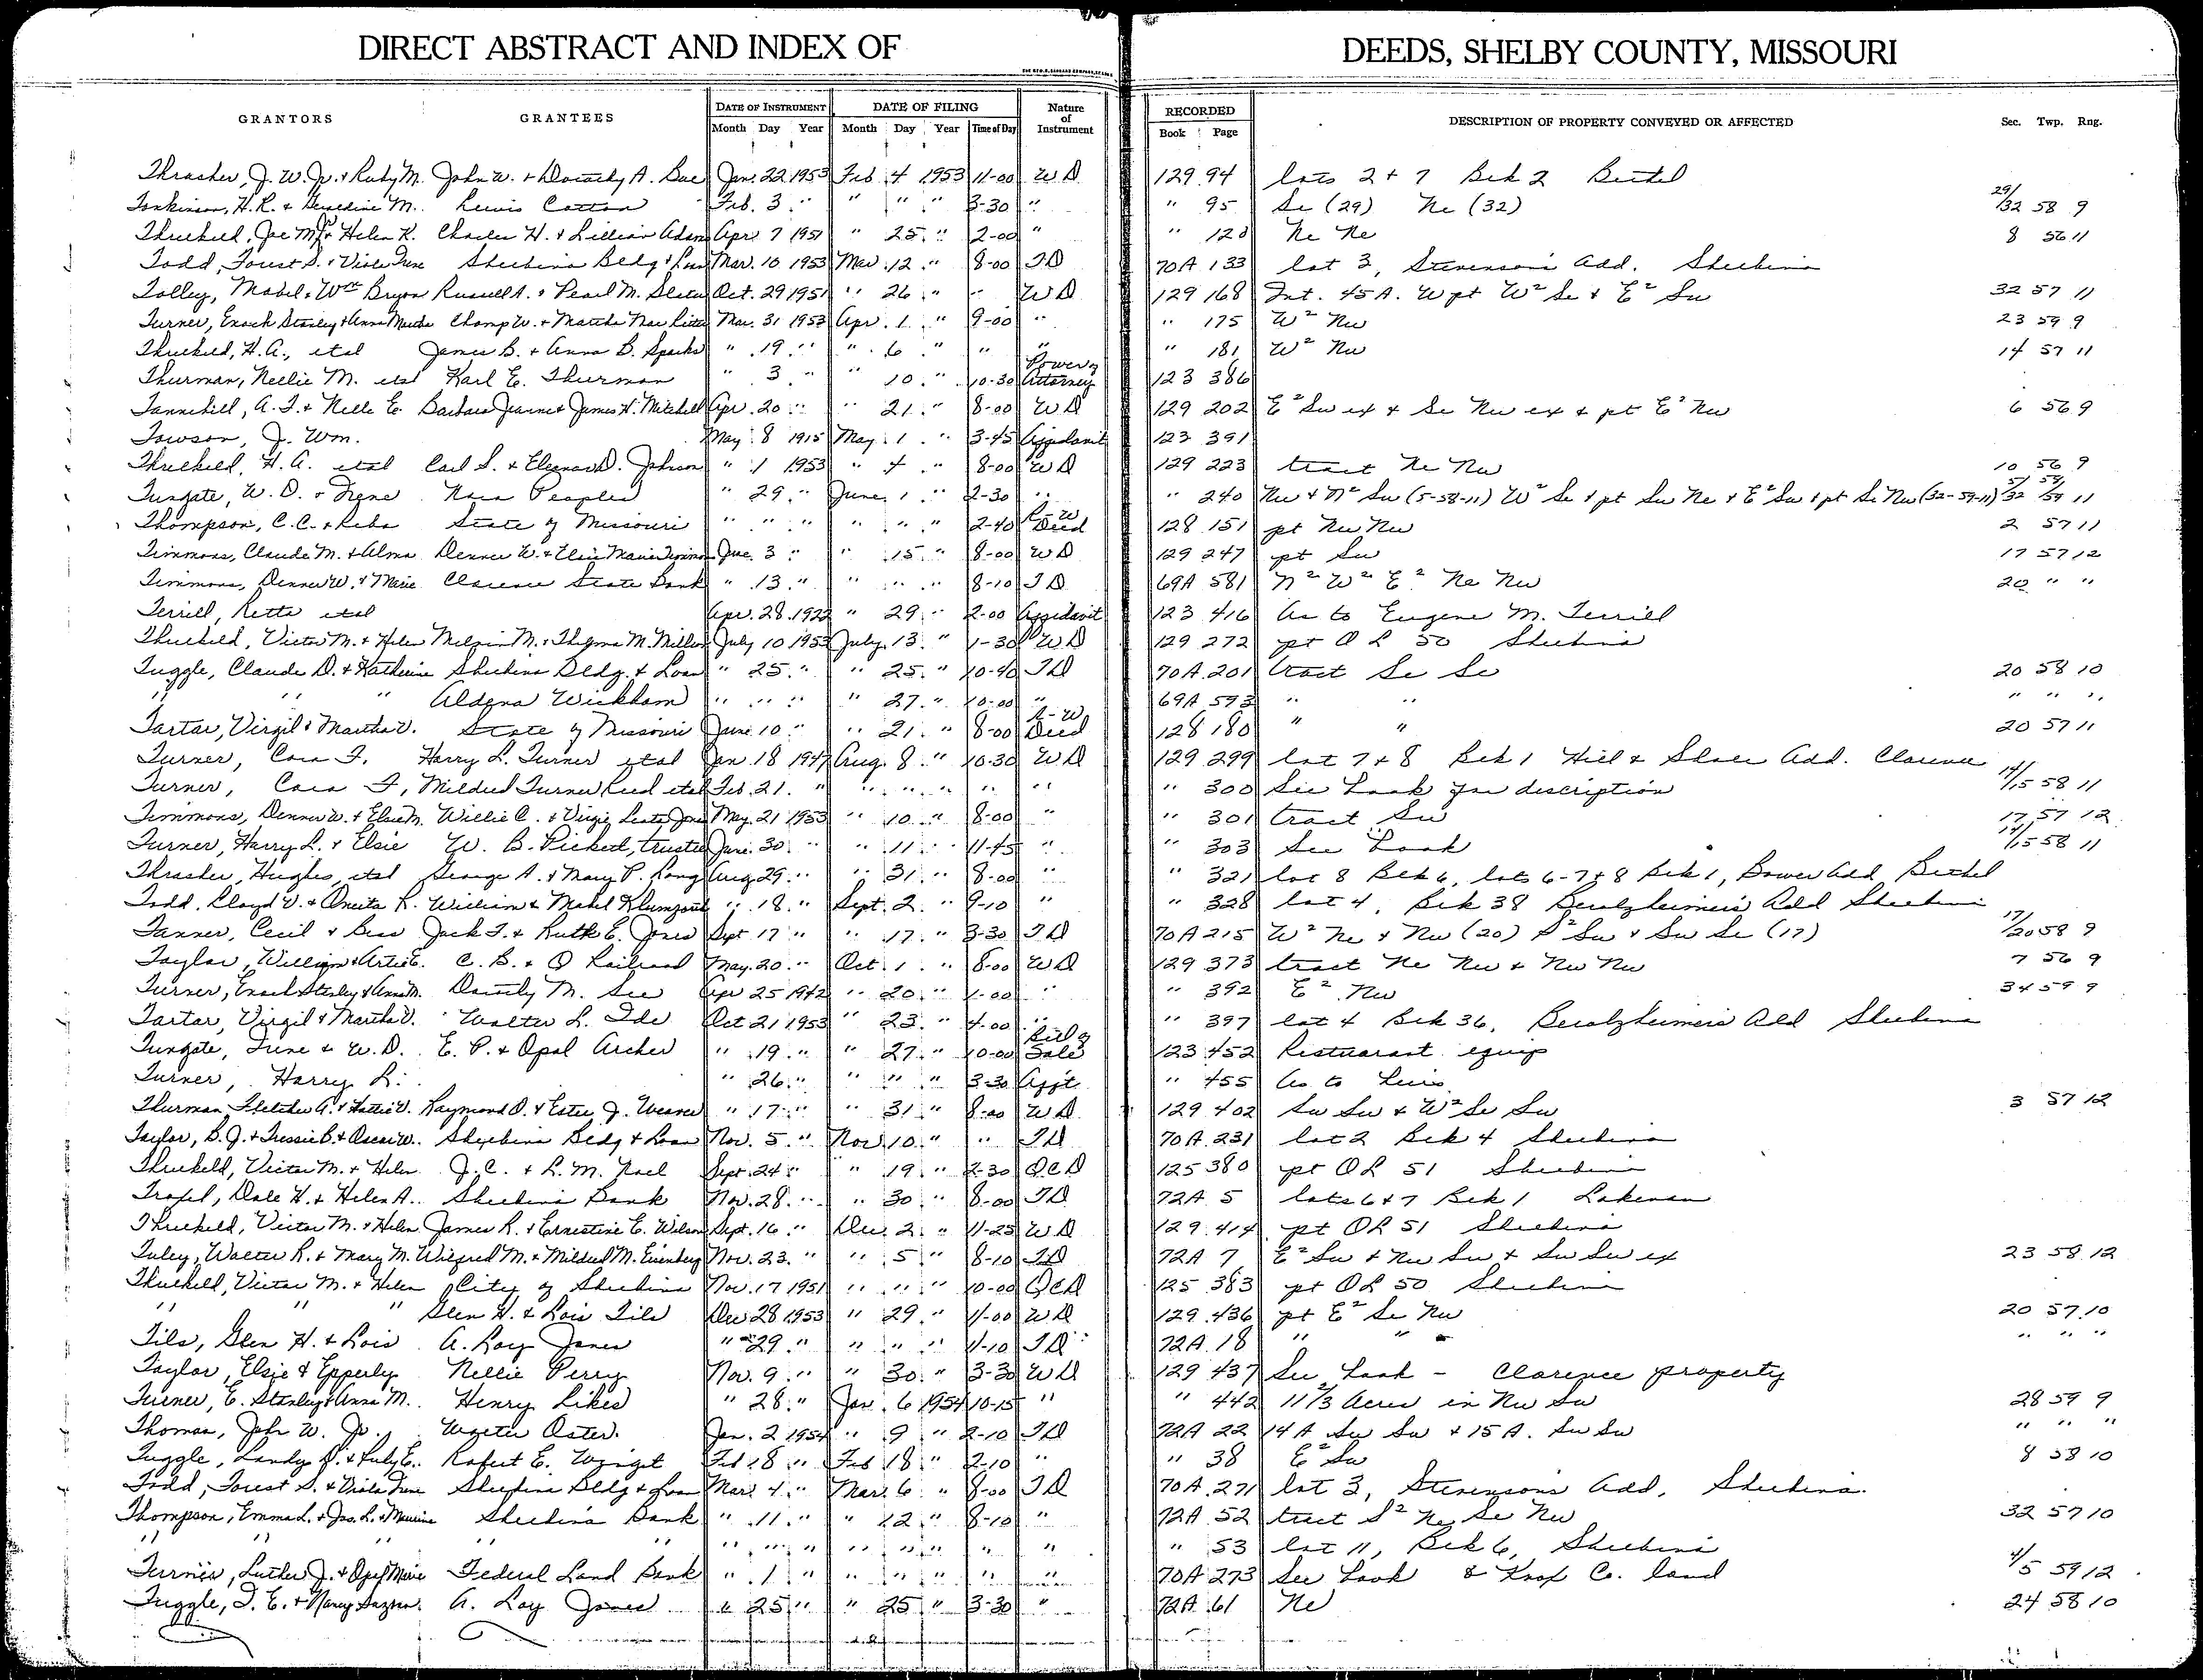 DIRECT ABSTRACT AND INDEX OF DEEDS, SHELBY COUNTY, MISSOURI
GRANTORS GRANTEES DATE OF INSTRUMENT DATE OF FILING Nature of Instrument RECORDED DESCRIPTION OF PROPERTY CONVEYED OR AFFECTED Sec. Twp. Rng.
Month Day Year Month Day Year Time of Day Book Page
Thrasher, J. W. Jr. & Ruby M. John W. & Dorothy A. Jan. 22 1953 Feb 4 1953 11-00 WD 129 94 lots 2 + 7 Blk 2 Bethel
Tonkinson, H. R. & Geraldine M. Lewis Cotton Feb. 3 " " " " 3-30 " " 95 Se (29) Ne (32) 29/32 58 9
Threlkeld, Joe M. & Helen K. Charles H. & Lillian Adam Apr. 7 1951 " 25 " 2-00 " " 120 Ne Ne 8 56 11
Todd, Forest S. & Viola June Shelbina Bldg & Loan Mar. 10 1953 Mar. 12 " 8-00 TD 70A 133 lot 3, Stevenson's Add. Shelbina
Tolley, Mabel & Wm Bryon Russell A. & Pearl M. Oct. 29 1951 " 26 " " WD 129 168 Int. 45 A. W pt W² Se & E² Sw 32 57 11
Turner, Enoch Stanley & Anna Champ W. & Martha Mae Mar. 31 1953 Apr. 1 " 9-00 " " 175 W² Nw 23 59 9
Threlkeld, H. A., etal James B. & Anna B. Sparks " 19 " " 6 " " " " 181 W² Nw 14 57 11
Thurman, Nellie M. etal Karl E. Thurman " 3 " " 10 " 10-30 Power of Attorney 123 386
Tannehill, A. F. & Nelle E. Barbara Jeanne & James H. Mitchell Apr. 20 " " 21 " 8-00 WD 129 202 E² Sw ex & Se Nw ex & pt E² Nw 6 56 9
Towson, J. Wm. May 8 1915 May 1 " 3-45 Affidavit 123 391
Threlkeld, H. A. etal Carl S. & Eleanor D. Johnson " 1 1953 " 4 " 8-00 WD 129 223 tract Ne Nw 10 56 9
Tungate, W. D. & Irene Nora Peoples " 29 " June 1 " 2-30 " " 240 Nw & N² Sw (5-58-11) W² Se & pt Sw Ne & E² Sw & pt Se Nw (32-59-11) 5/32 58/59 11
Thompson, C. C. & Reba State of Missouri " " " " " " 2-40 R-W Deed 128 151 pt Nw Nw 2 57 11
Timmons, Claude M. & Alma Denner W. & Elsie Marie Timmons June 3 " " 15 " 8-00 WD 129 247 pt Sw 17 57 12
Timmons, Denner W. & Marie Clarence State Bank " 13 " " " " 8-10 TD 69A 581 N² W² E² Ne Nw 20 " "
Terrill, Retta etal Apr. 28 1922 " 29 " 2-00 Affidavit 123 416 As to Eugene M. Terrill
Threlkeld, Victor M. & Helen Melvin M. & Thelma M. Miller July 10 1953 July 13 " 1-30 WD 129 272 pt O L 50 Shelbina
Tuggle, Claude D. & Katherine Shelbina Bldg. & Loan " 25 " " 25 " 10-40 TD 70A 201 tract Se Se 20 58 10
" " " Aldena Wickham " " " " 27 " 10-00 " 69A 593 " " " " "
Tartar, Virgil & Martha V. State of Missouri June 10 " " 21 " 8-00 R-W Deed 128 180 " " 20 57 11
Turner, Cora F. Harry L. Turner etal Jan. 18 1947 Aug. 8 " 10-30 WD 129 299 lot 7 & 8 Blk 1 Hill & Add. Clarence
Turner, Cora F, Mildred Turner etal Feb. 21 " " " " " " " 300 See Book for discription 14/15 58 11
Timmons, Denner W. & Elsie M. Willie C. & Virgie May 21 1953 " 10 " 8-00 " " 301 tract Sw 17 57 12
Turner, Harry L. & Elsie W. B. Pickett, trustee June 30 " " 11 " 11-45 " " 303 See Book 14/15 58 11
Thrasher, Hughes, etal George A. & Mary P. Long Aug 29 " " 31 " 8-00 " " 321 lot 8 Blk 6, lots 6-7 & 8 Blk 1, Bower Add Bethel
Todd, Cloyd V. & Oneita R. William & Mabel " 18 " Sept. 2 " 9-10 " " 328 lot 4, Blk 38 Beralzheimer's Add Shelbina
Tanner, Cecil & Bess Jack T. & Ruth E. Jones Sept 17 " " 17 " 3-30 TD 70A 215 W² Ne & Nw (20) S² Sw & Sw Se (17) 17/20 58 9
Taylor, William & Artie E. C. B. & Q Railroad May 20 " Oct 1 " 8-00 WD 129 373 tract Ne Nw & Nw Nw 7 56 9
Turner, Enoch Stanley & Anna M. Dorothy M. See Apr 25 1942 " 20 " 1-00 " " 392 E² Nw 34 59 9
Tartar, Virgil & Martha V. Walter L. Ide Oct 21 1953 " 23 " 4-00 " " 397 lot 4 Blk 36, Beralzheimer's Add Shelbina
Tungate, Irene & W. D. E. P. & Opal Archer " 19 " " 27 " 10-00 Bill of Sale 123 452 Restuarant equip
Turner, Harry L. " 26 " " " " 3-30 Aff't " 455 As to
Thurman, Fletcher A. & Hattie V. Raymond O. & Ester J. Weaver " 17 " " 31 " 8-00 WD 129 402 Sw Sw & W² Se Sw 3 57 12
Taylor, B. J. & Tressie B. & Oscar W. Shelbina Bldg & Loan Nov. 5 " Nov 10 " " TD 70A 231 lot 2 Blk 4 Shelbina
Threlkeld, Victor M. & Helen J. C. & L. M. Noel Sept. 24 " " 19 " 2-30 QCD 125 380 pt OL 51 Shelbina
Dale H. & Helen A. Shelbina Bank Nov. 28 " " 30 " 8-00 TD 72A 5 lots 6 & 7 Blk 1 Lakenan
Threlkeld, Victor M. & Helen James R. & Ernestine E. Wilson Sept. 16 " Dec. 2 " 11-25 WD 129 414 pt OL 51 Shelbina
Tuley, Walter R. & Mary M. Wilfred M. & Mildred M. Eisenberg Nov. 23 " " 5 " 8-10 TD 72A 7 E² Sw & Nw Sw & Sw Sw ex 23 58 12
Threlkeld, Victor M. & Helen City of Shelbina Nov. 17 1951 " " " 10-00 QCD 125 383 pt OL 50 Shelbina
" " " Glen H. & Lois Tils Dec 28 1953 " 29 " 11-00 WD 129 436 pt E² Se Nw 20 57 10
Tils, Glen H. & Lois A. Roy Jones " 29 " " " " 11-10 TD 72A 18 " " " " "
Taylor, Elsie & Epperly Nellie Perry Nov. 9 " " 30 " 3-30 WD 129 437 See Book - Clarence property
Turner, E. Stanley & Anna M. Henry Likes " 28 " Jan. 6 1954 10-15 " " 442 11⅓ Acres in Nw Sw 28 59 9
Thomas, John W. Jr. Walter Oster Jan. 2 1954 " 9 " 2-10 TD 72A 22 14 A Sw Sw & 15 A. Sw Sw " " "
Tuggle, Landy & Ruby E. Robert E. Wright Feb 18 " Feb 18 " 2-10 " " 38 E² Sw 8 58 10
Todd, Forest S. & Viola June Shelbina Bldg & Loan Mar. 4 " Mar. 6 " 8-00 TD 70A 271 lot 3, Stevenson's Add, Shelbina
Thompson, Emma L. & Jas. L. & Maurine Shelbina Bank " 11 " " 12 " 8-10 " 72A 52 tract S² Ne Se Nw 32 57 10
" " " " " " " " " " " " " 53 lot 11, Blk 6, Shelbina
Luther J. & Opal Marie Federal Land Bank " 1 " " " " " " 70A 273 See Book & Knox Co. land 4/5 59 12
Tuggle, T. E. & Nancy A. Roy Jones " 25 " " 25 " 3-30 " 72A 61 Ne 24 58 10